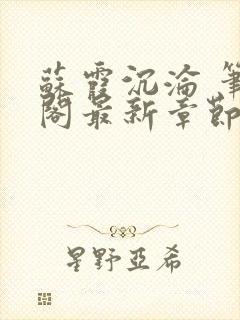 蘇霞沉淪 筆
閣最新章節
星野亞希